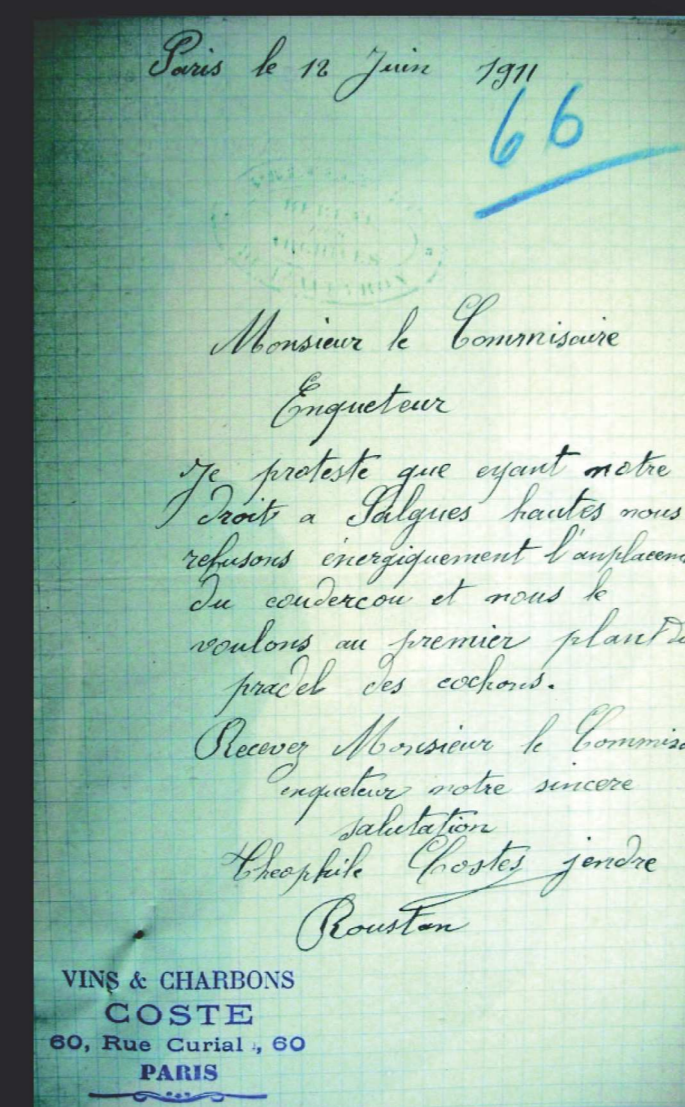 Paris le 12 Juin 1911
66
Monsieur le Commisaire
Enqueteur
Je proteste que eyant notre
droit a Salgues hautes nous
refusons énergiquement l'anplacem
du coudercou et nous le
voulons au premier plant du
pradel des cochons.
Recevez Monsieur le Commisa
enqueteur notre sincere
salutation
Theophile Costes jendre
Roustan
VINS & CHARBONS
COSTE
60, Rue Curial, 60
PARIS